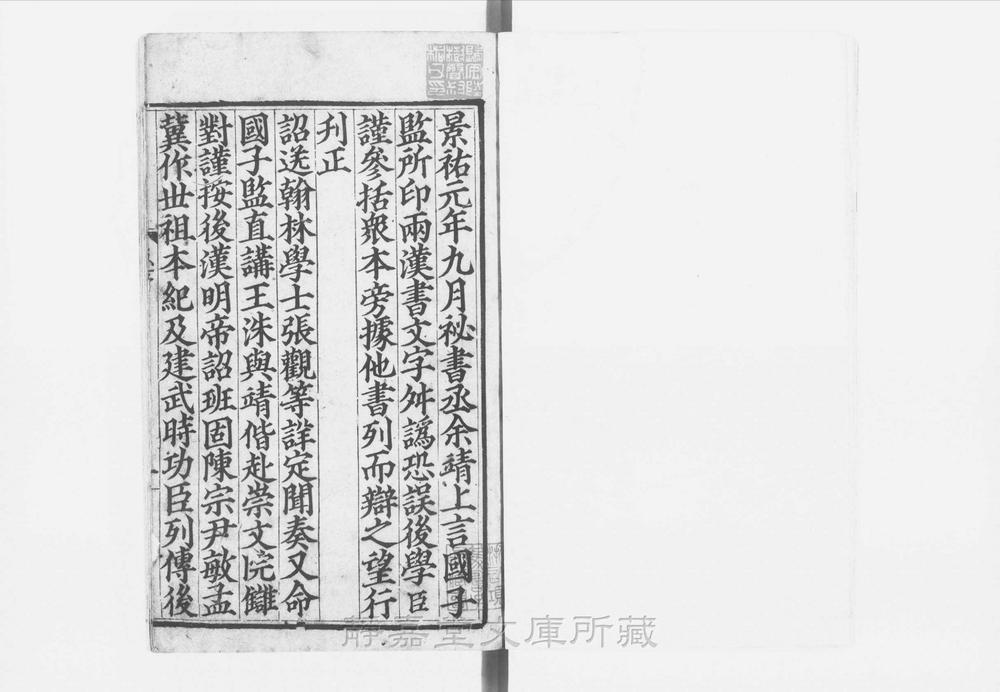 景祐元年九月祕書丞余靖上言國子
監所印兩漢書文字舛譌恐誤後學臣
謹參括衆本旁據他書列而辯之望行
刋正
詔送翰林學士張觀等詳定聞奏又命
國子監直講王洙與靖偕赴崇文院讎
對謹按後漢明帝詔班固陳宗尹敏孟
冀作世祖本紀及建武時功臣列傳後
靜嘉堂文庫所藏